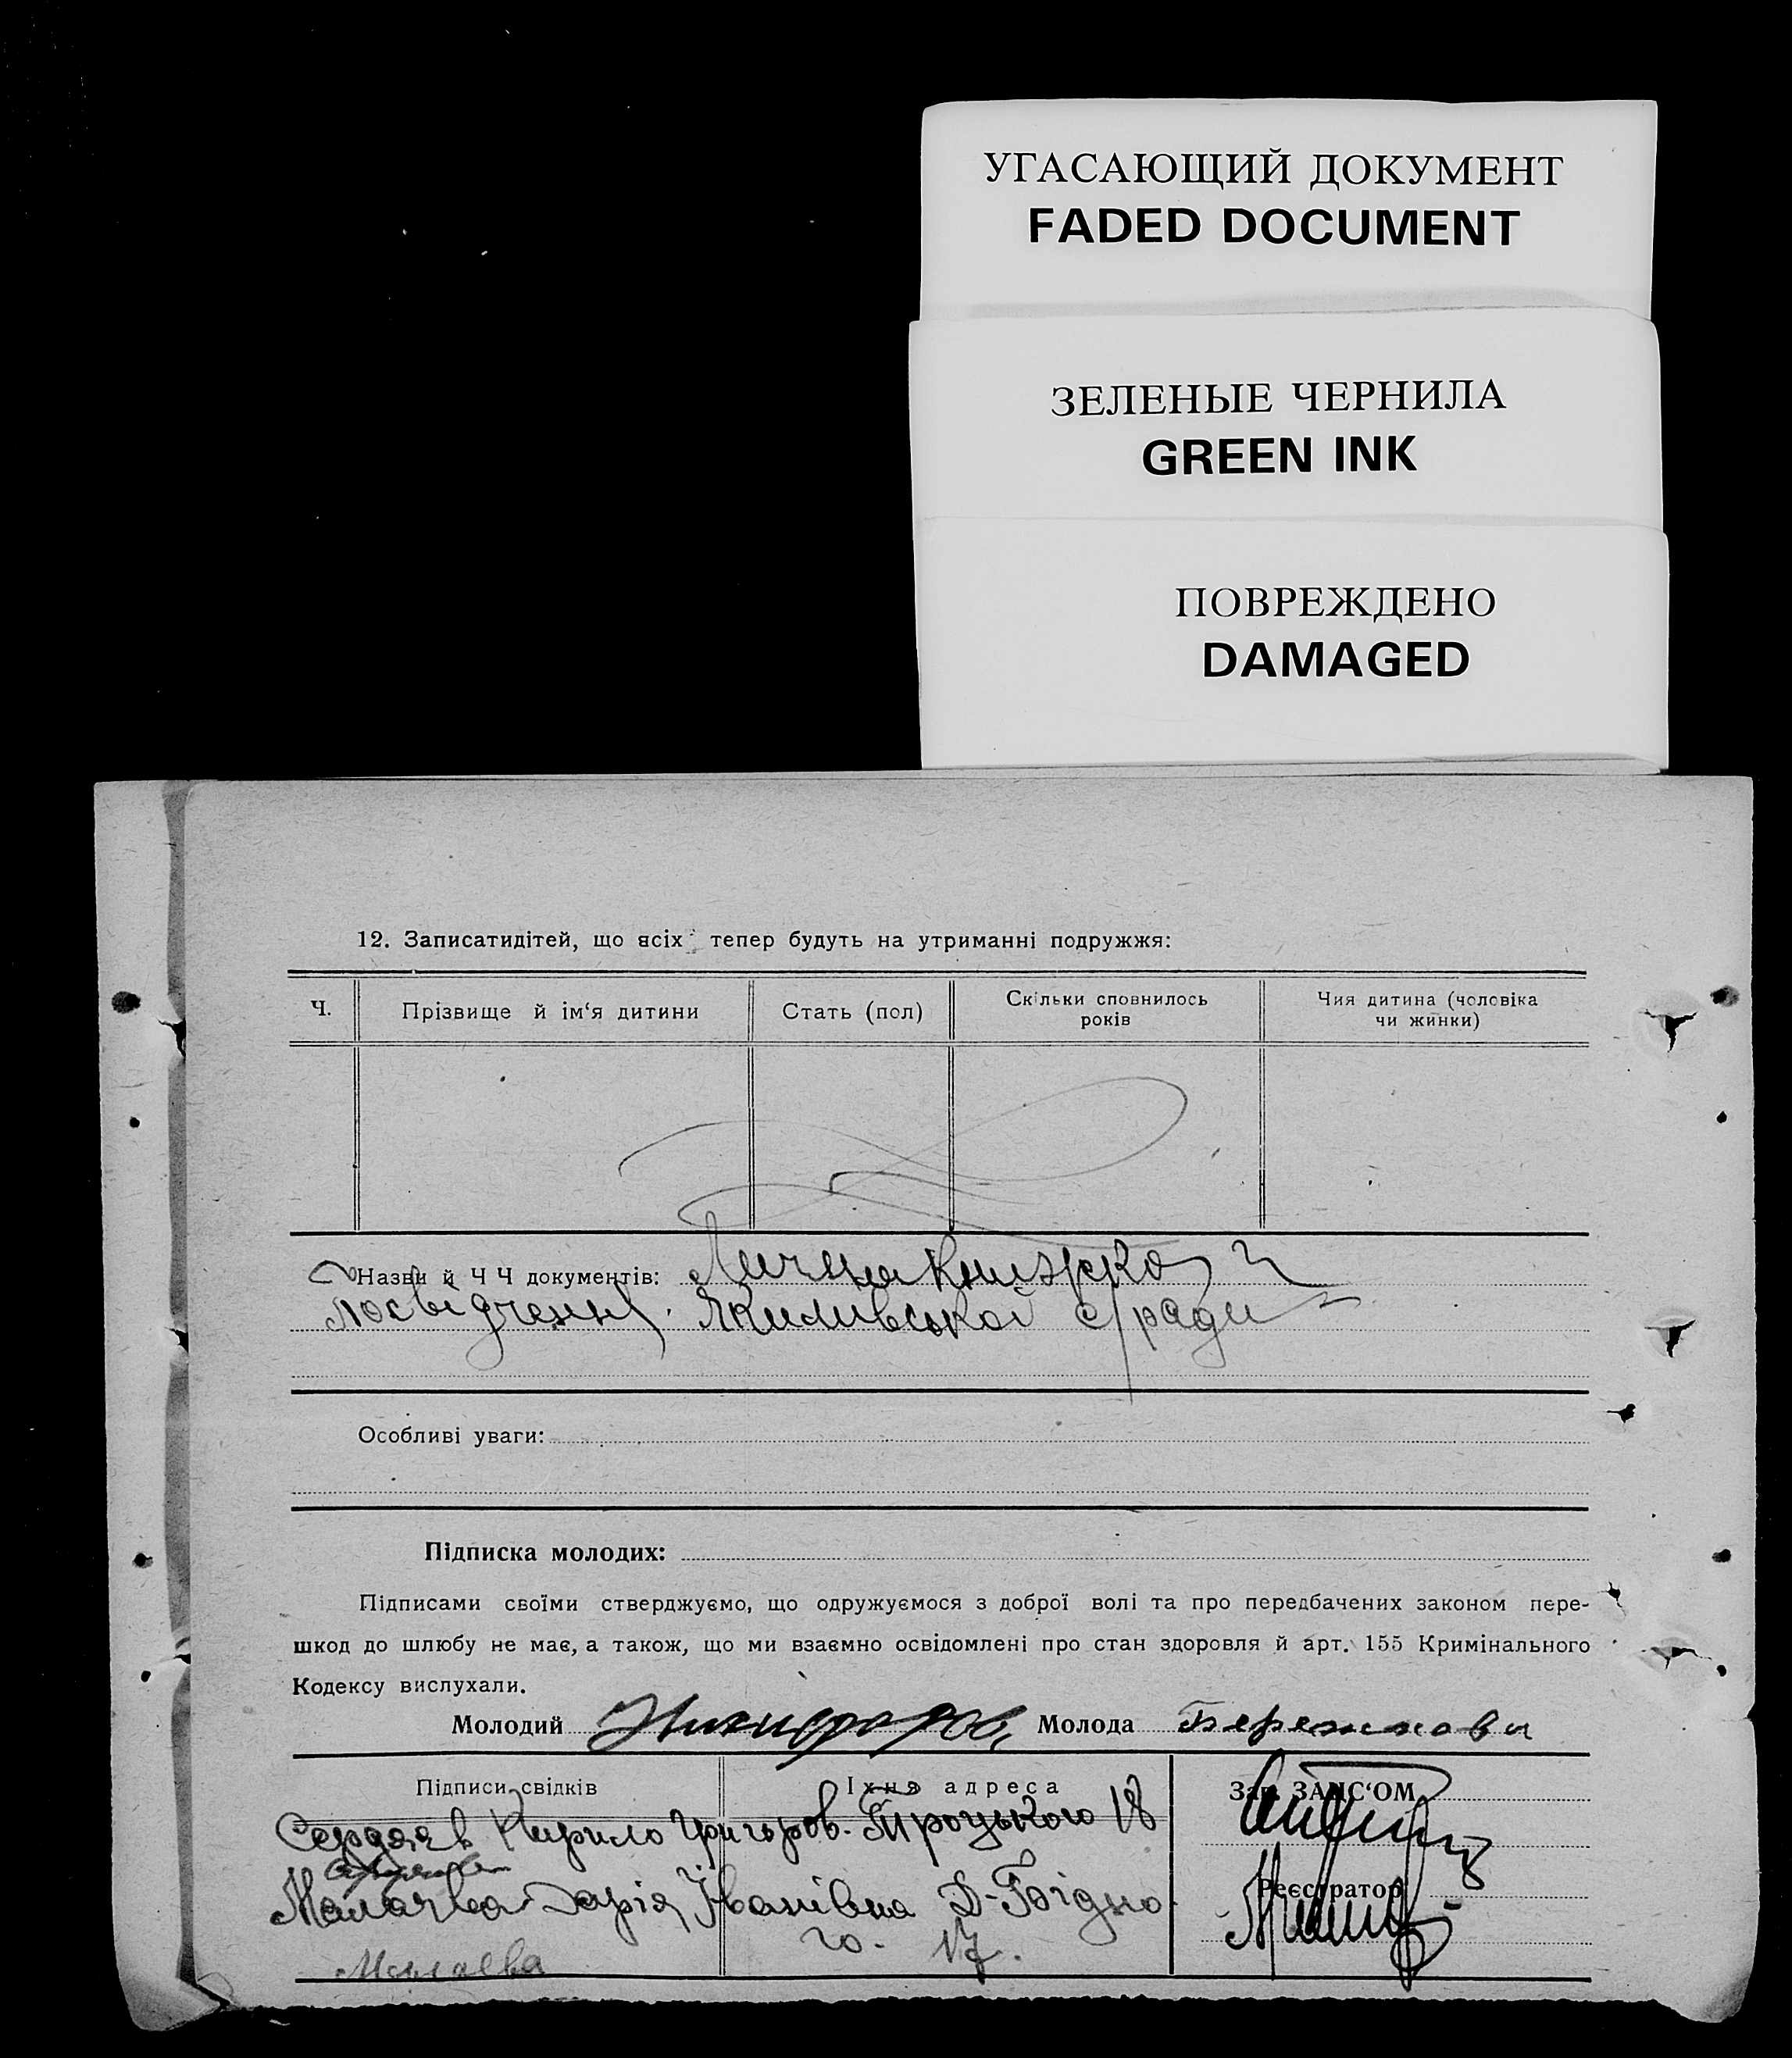 УГАСАЮЩИЙ ДОКУМЕНТ
FADED DOCUMENT
ЗЕЛЕНЫЕ ЧЕРНИЛА
GREEN INK
ПОВРЕЖДЕНО
DAMAGED
12. Записатидітей, що всіх тепер будуть на утриманні подружжя:
Ч.
Прізвище й ім‘я дитини
Стать (пол)
Скільки сповнилось
років
Чия дитина (чоловіка
чи жинки)
Назви й Ч Ч документів: Лична книжка й
посвідчення Якимівської с/ради
Особливі уваги:
Підписка молодих:
Підписами своїми стверджуємо, що одружуємося з доброї волі та про передбачених законом пере-
шкод до шлюбу не має, а також, що ми взаємно освідомлені про стан здоровля й арт. 155 Кримінального
Кодексу вислухали.
Молодий Никифоров Молода
Підписи свідків
Їхня адреса
Зав. ЗАПС‘ОМ
Кирило Григоров. Троцького 18
Дарія Іванівна Д-Бідно-
го. 17.
Реєстратор
Малаєва